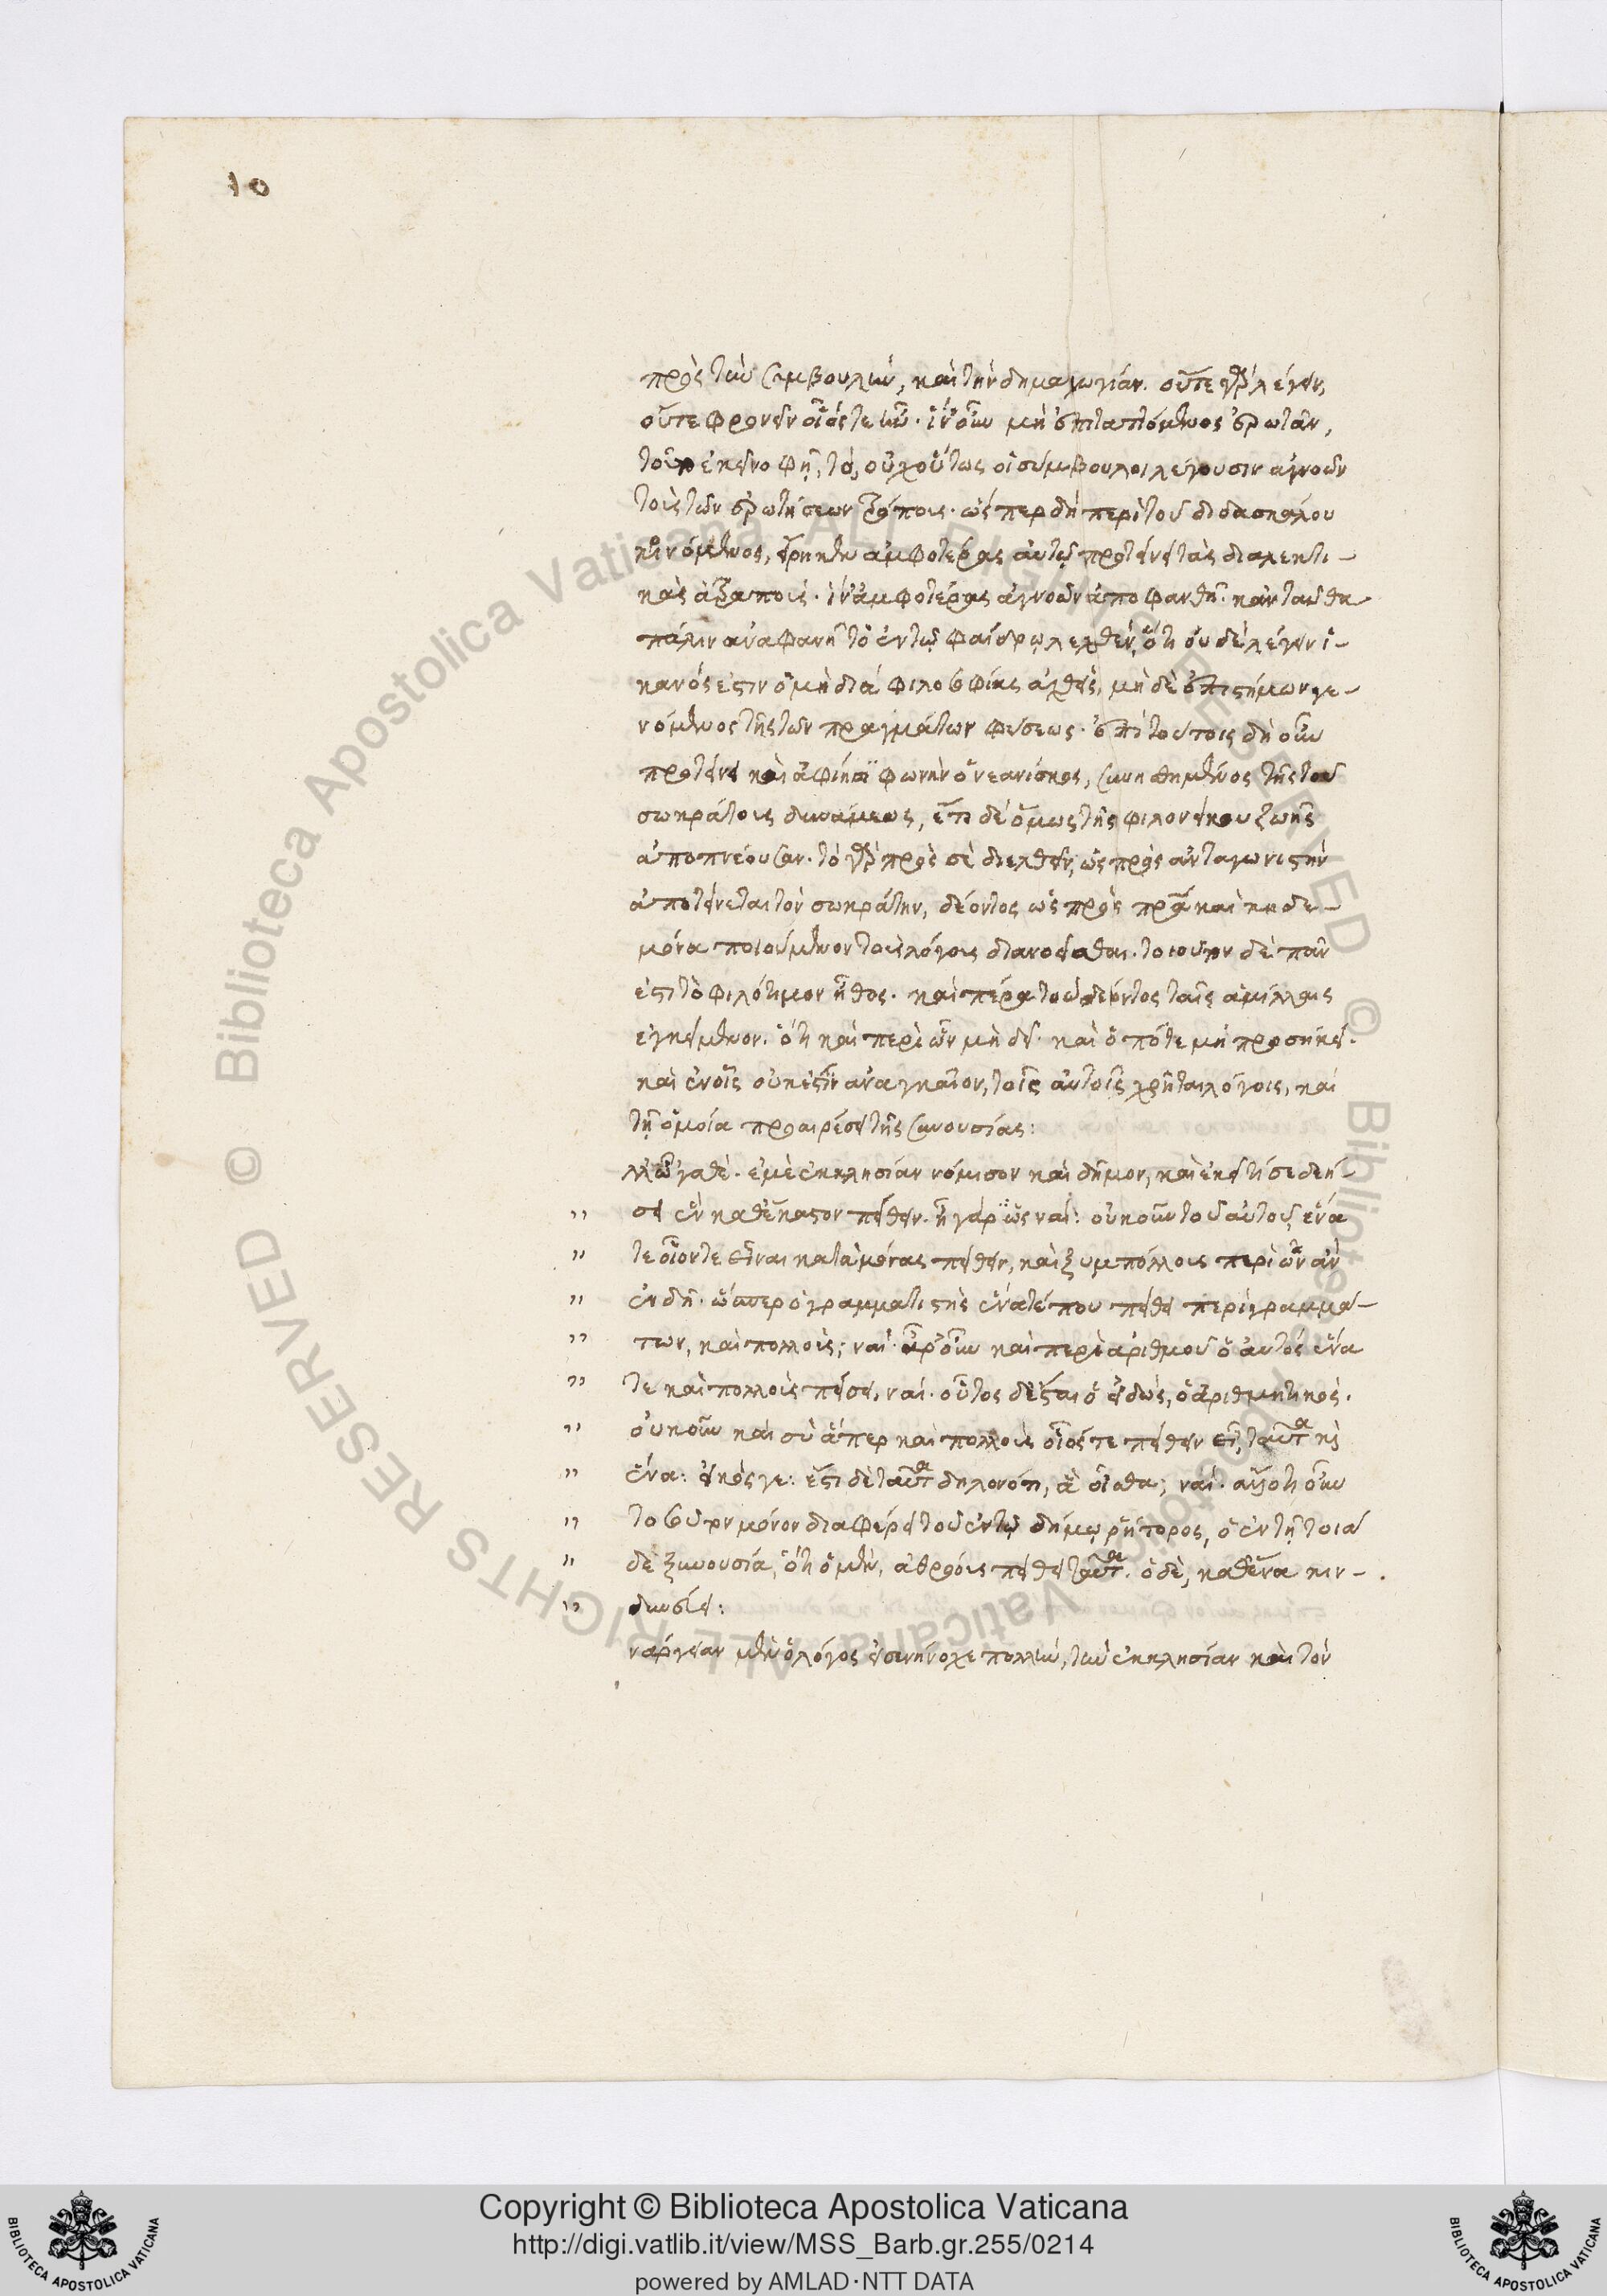 10
πρὸς τὴν συμβουλὴν, καὶ τὴν δημαγωγίαν. οὔτε γὰρ λέγειν,
οὔτε φρονεῖν οἷός τε ἦν. ἵν' οὖν μὴ ἐπιταττόμενος ἐρωτᾶν,
τοῦτο ἐκεῖνο φῇ, τὸ, οὐχ οὕτως οἱ σύμβουλοι λέγουσιν ἀγνοῶν
τοὺς τῶν ἐρωτήσεων τρόπους. ὥσπερ δὴ περὶ τοῦ διδασκάλου
κινόμενος, εἴρηκεν ἀμφοτέρας αὐτῷ προτείνει τὰς διαλεκτι-
κὰς ἀτραπούς. ἵν' ἀμφοτέρας ἀγνοῶν ἀποφανθῇ. κἀνταῦθα
πάλιν ἀναφανῇ τὸ ἐν τῷ Φαίδρῳ λεχθέν, ὅτι οὐδὲ λέγειν ἱ-
κανός ἐστιν ὁ μὴ διὰ φιλοσοφίας ἀχθείς, μὴ δὲ ἐπιστήμων γε-
νόμενος τῆς τῶν πραγμάτων φύσεως. ἐπὶ τούτοις δὴ οὖν
προτείνει καὶ ἀφίησι φωνὴν ὁ νεανίσκος, συνῃσθημένος τῆς τοῦ
σωκράτους δυνάμεως, ἔτι δὲ ὅμως τῆς φιλονείκου ζωῆς
ἀποπνέουσαν. τὸ γὰρ πρὸς σὲ διελθεῖν, ὡς πρὸς ἀνταγωνιστὴν
ἀποτείνεται τὸν σωκράτην, δέοντος ὡς πρὸς πατέρα καὶ κηδε-
μόνα ποιούμενον τοὺς λόγους διανοεῖσθαι. τοιοῦτον δὲ πᾶν
ἐστὶ τὸ φιλότιμον ἦθος. καὶ πέρα τοῦ δέοντος ταῖς ἁμίλλαις
ἐγκείμενον. ὅτι καὶ περὶ ὧν μὴ δεῖ. καὶ ὁπότε μὴ προσήκει.
καὶ ἐν οἷς οὐκ ἔστιν ἀναγκαῖον, τοῖς αὐτοῖς χρῆται λόγοις, καὶ
τῇ ὁμοίᾳ προαιρέσει τῆς συνουσίας:
λλ' ὦγαθέ. ἐμὲ ἐκκλησίαν νόμισον καὶ δῆμον, καὶ ἐκεῖ τί σε δεή-
" σει ἓν καθ' ἕκαστον πείθειν. ἦ γάρ ὡς ναί: οὐκοῦν τοῦ αὐτοῦ, ἕνα
" τε οἷόν τε εἶναι κατὰ μόνας πείθειν, καὶ ξυμπόλλους περὶ ὧν ἂν
" εἰδῇ. ὥσπερ ὁ γραμματιστὴς ἕνα τέ που πείθει περὶ γραμμά-
" των, καὶ πολλοὺς; ναί. ἆρ' οὖν καὶ περὶ ἀριθμοῦ ὁ αὐτὸς ἕνα
" τε καὶ πολλοὺς πείσει, ναί. οὗτος δ' ἔσται ὁ εἰδώς, ὁ ἀριθμητικός.
" οὐκοῦν καὶ σὺ ἅπερ καὶ πολλοὺς οἷός τε πείθειν εἶ, ταῦτα καὶ
" ἕνα: εἰκός γε: ἔστι δὲ ταῦτα δηλονότι, ἃ οἶσθα; ναί. ἄλλοτι οὖν
" τοσοῦτον μόνον διαφέρει τοῦ ἐν τῷ δήμῳ ῥήτορος, ὁ ἐν τῇ τοιᾷ
" δε ξυνουσίᾳ, ὅτι ὁ μὲν, ἀθρόους πείθει ταῦτα. ὁ δὲ, καθ' ἕνα κιν-
" δυνεύει:
ναργειαν μὲν ὁ λόγος εἰσενήνοχε πολλὴν, τὴν ἐκκλησίαν καὶ τὸν
Copyright © Biblioteca Apostolica Vaticana
http://digi.vatlib.it/view/MSS_Barb.gr.255/0214
powered by AMLAD·NTT DATA
BIBLIOTECA APOSTOLICA VATICANA
BIBLIOTECA APOSTOLICA VATICANA
© Biblioteca Apostolica Vaticana ALL RIGHTS RESERVED
© Biblioteca Apostolica Vaticana ALL RIGHTS RESERVED